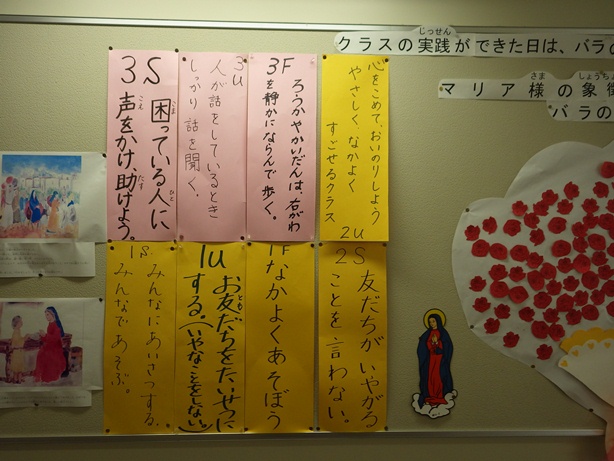 クラスの実践ができた日は、バラの
じっせん
マリア様の象徴
さま
しょうちょう
バラの
3S
困っている人に
こま
ひと
声をかけ、助けよう。
こえ
たす
3U
人が話をしているとき
しっかり話を聞く。
3F
ろうかやかいだんは、右がわ
を静かにならんで歩く。
心をこめて、おいのりしよう
やさしく、なかよく
すごせるクラス
2U
1S
みんなにあいさつする。
みんなであそぶ。
1U
お友だちをたいせつに
とも
する。(いやなことをしない)
1F
なかよくあそぼう
2S
友だちがいやがる
ことを言わない。